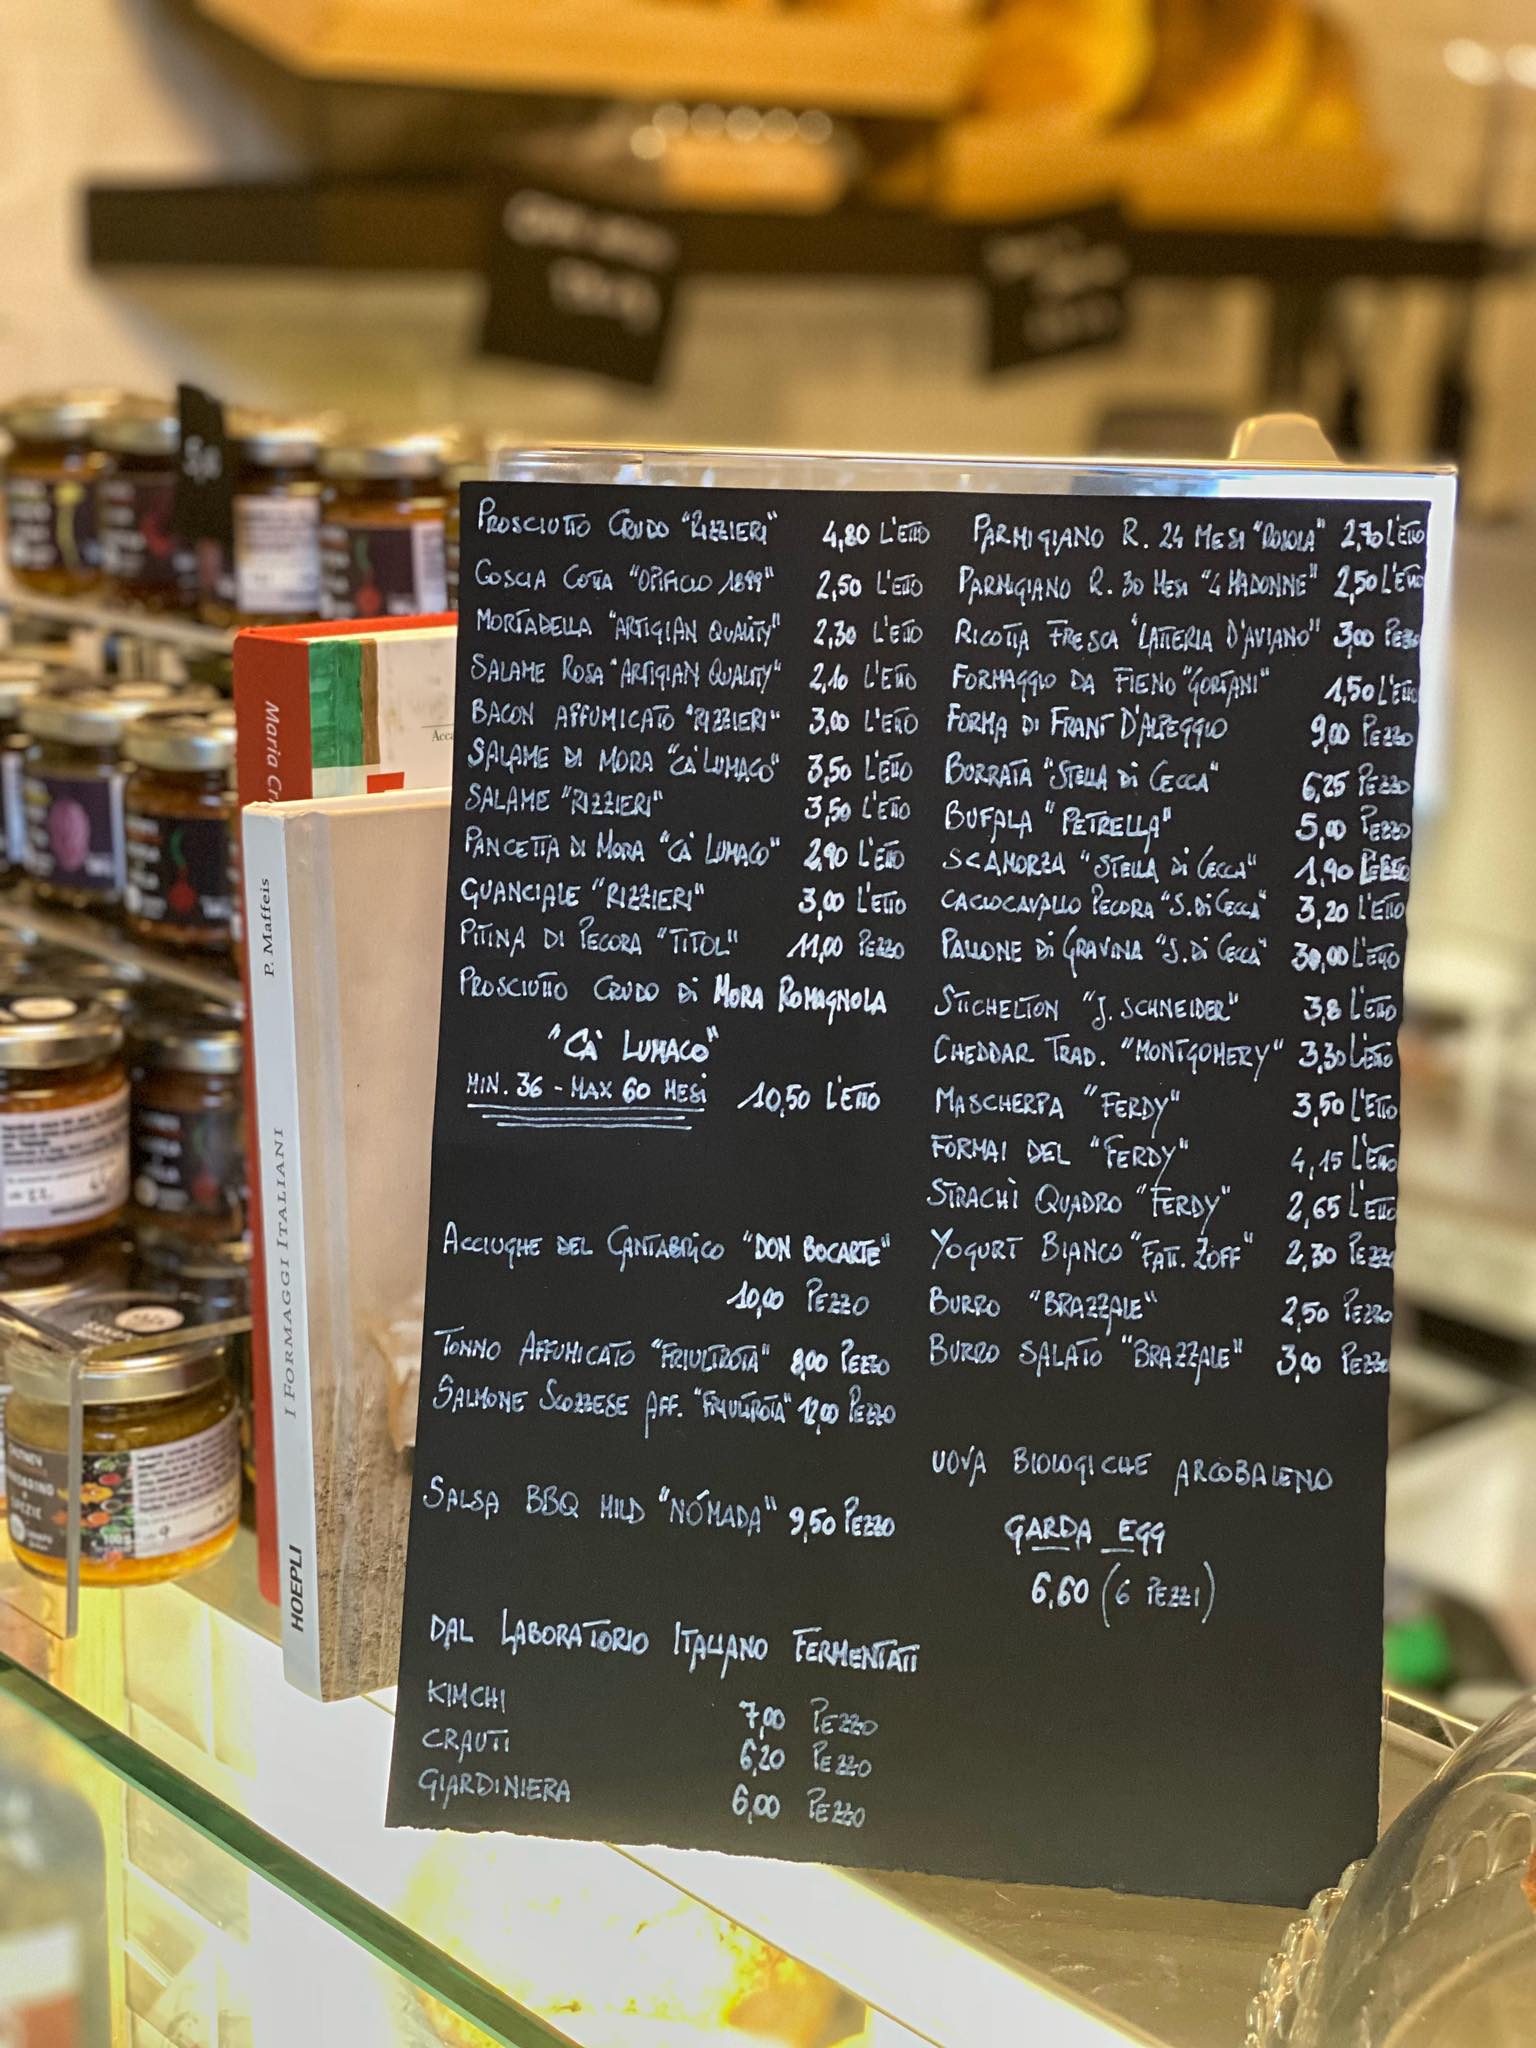 PROSCIUTTO CRUDO "RIZZIERI" 4,80 L'ETTO
COSCIA COTTA "OPIFICIO 1899" 2,50 L'ETTO
MORTADELLA "ARTIGIAN QUALITY" 2,30 L'ETTO
SALAME ROSA "ARTIGIAN QUALITY" 2,10 L'ETTO
BACON AFFUMICATO "RIZZIERI" 3,00 L'ETTO
SALAME DI MORA "CÀ LUMACO" 3,50 L'ETTO
SALAME "RIZZIERI" 3,50 L'ETTO
PANCETTA DI MORA "CÀ LUMACO" 2,90 L'ETTO
GUANCIALE "RIZZIERI" 3,00 L'ETTO
PITINA DI PECORA "TITOL" 11,00 PEZZO
PROSCIUTTO CRUDO DI MORA ROMAGNOLA
"CÀ LUMACO"
MIN. 36 - MAX 60 MESI 10,50 L'ETTO
ACCIUGHE DEL CANTABRICO "DON BOCARTE"
10,00 PEZZO
TONNO AFFUMICATO "FRIULTROTA" 8,00 PEZZO
SALMONE SCOZZESE AFF. "FRIULTROTA" 12,00 PEZZO
SALSA BBQ MILD "NÓMADA" 9,50 PEZZO
DAL LABORATORIO ITALIANO FERMENTATI
KIMCHI 7,00 PEZZO
CRAUTI 6,20 PEZZO
GIARDINIERA 6,00 PEZZO
PARMIGIANO R. 24 MESI "ROSOLA" 2,70 L'ETTO
PARMIGIANO R. 30 MESI "4 MADONNE" 2,50 L'ETTO
RICOTTA FRESCA "LATTERIA D'AVIANO" 3,00 PEZZO
FORMAGGIO DA FIENO "GORTANI" 1,50 L'ETTO
FORMA DI FRANT D'ALPEGGIO 9,00 PEZZO
BURRATA "STELLA DI CECCA" 6,25 PEZZO
BUFALA "PETRELLA" 5,00 PEZZO
SCAMORZA "STELLA DI CECCA" 1,90
CACIOCAVALLO PECORA "S. DI CECCA" 3,20 L'ETTO
PALLONE DI GRAVINA "S. DI CECCA" 30,00 L'ETTO
STICHELTON "J. SCHNEIDER" 3,8 L'ETTO
CHEDDAR TRAD. "MONTGOMERY" 3,30 L'ETTO
MASCHERPA "FERDY" 3,50 L'ETTO
FORMAI DEL "FERDY" 4,15 L'ETTO
STRACHÌ QUADRO "FERDY" 2,65 L'ETTO
YOGURT BIANCO "FATT. ZOFF" 2,30 PEZZO
BURRO "BRAZZALE" 2,50 PEZZO
BURRO SALATO "BRAZZALE" 3,00 PEZZO
UOVA BIOLOGICHE ARCOBALENO
GARDA EGG
6,60 (6 PEZZI)
Maria Cr
Acca
P. Maffeis
I FORMAGGI ITALIANI
HOEPLI